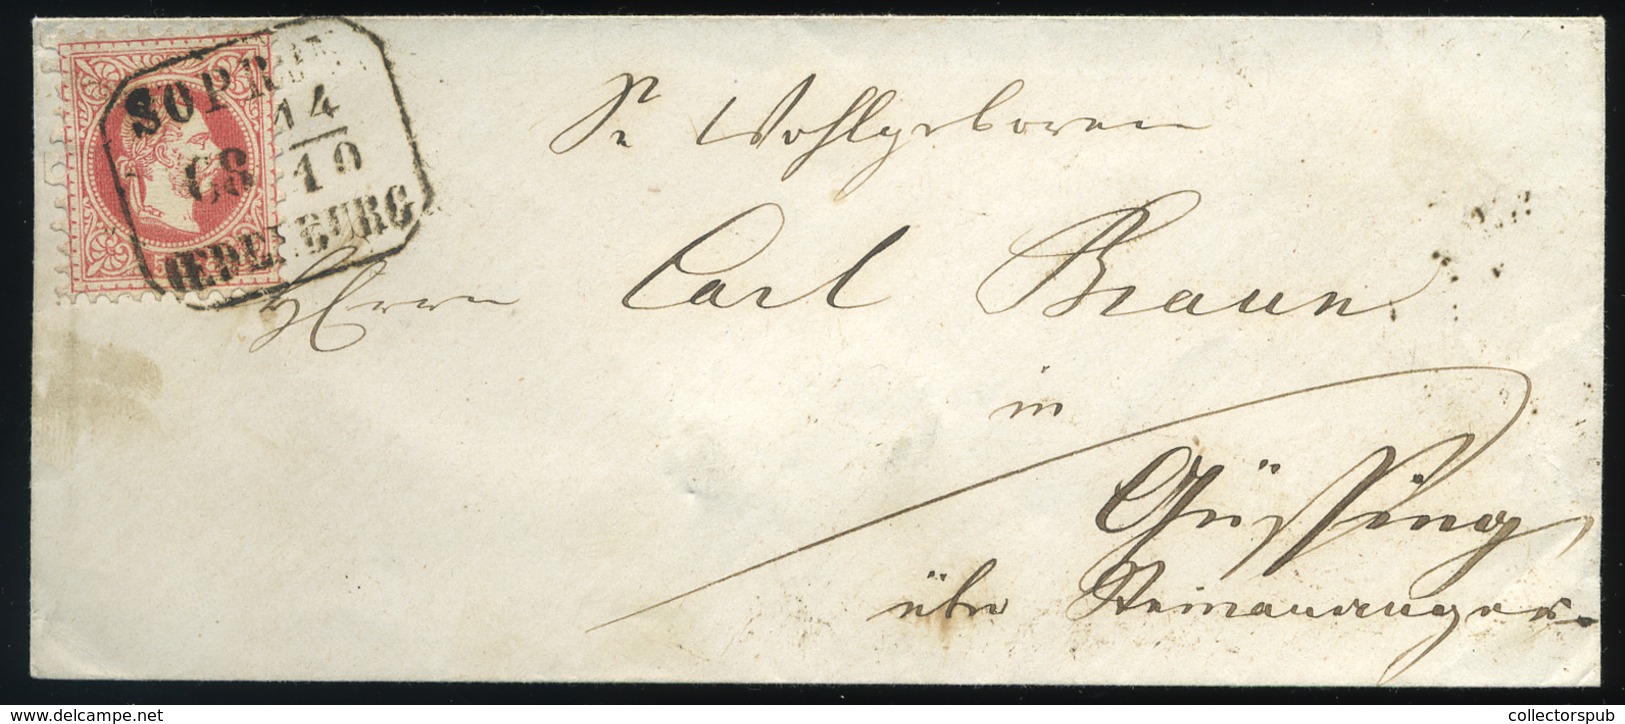 SOPRON
14
68 10
OEDENBURG
5
Sr Wohlgeboren
Herrn Carl Braun
in
Güssing
über Steinamanger.
collectorspub